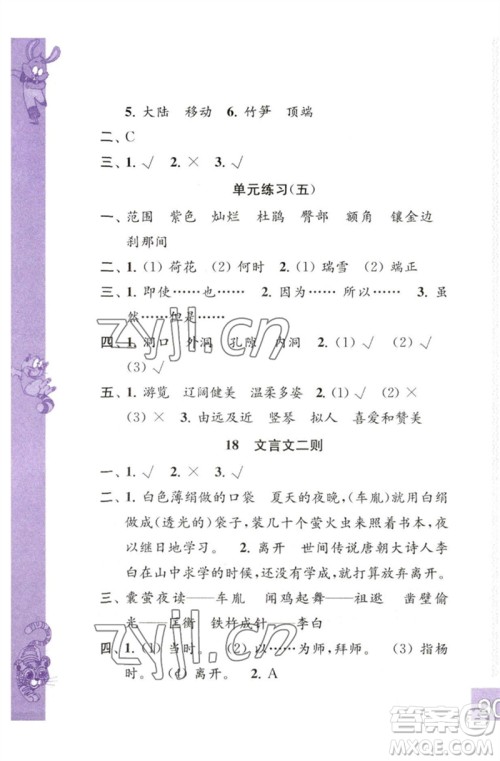 5. 大陆 移动 6. 竹笋 顶端
二、C
三、1. √ 2. × 3. √
单元练习(五)
一、范围 紫色 灿烂 杜鹃 臀部 额角 镶金边
刹那间
二、1. (1) 荷花 (2) 何时 2. (1) 瑞雪 (2) 端正
三、1. 即使……也…… 2. 因为……所以…… 3. 虽
然……但是……
四、1. 洞口 外洞 孔隙 内洞 2. (1) √ (2) √
(3) √
五、1. 游览 辽阔健美 温柔多姿 2. (1) √ (2) ×
(3) × 3. 由远及近 竖琴 拟人 喜爱和赞美
18 文言文二则
一、1. √ 2. √
二、1. 白色薄绢做的口袋 夏天的夜晚,(车胤)用白绢
做成(透光的)袋子,装几十个萤火虫照着书本,夜
以继日地学习。 2. 离开 世间传说唐朝大诗人李
白在山中求学的时候,还没有完成学业,就放弃离开
了。
三、囊萤夜读——车胤 闻鸡起舞——祖逖 凿壁偷
光——匡衡 铁杵成针——李白
四、1. (1) 当时。 (2) 以为师,拜师。 (3) 指杨
时。 (4) 离开。 2. A
zyjl.cn
zyjl.cn
答案圈